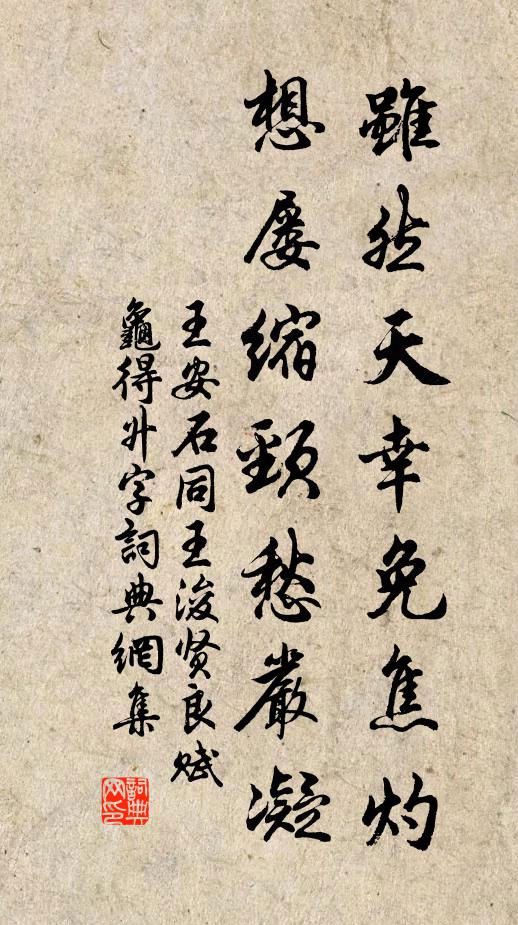 雖然天幸免焦灼
想屡縮頸愁嚴凝
王安石同王浚贤良赋
龜得升字詞典網集
詞典网印